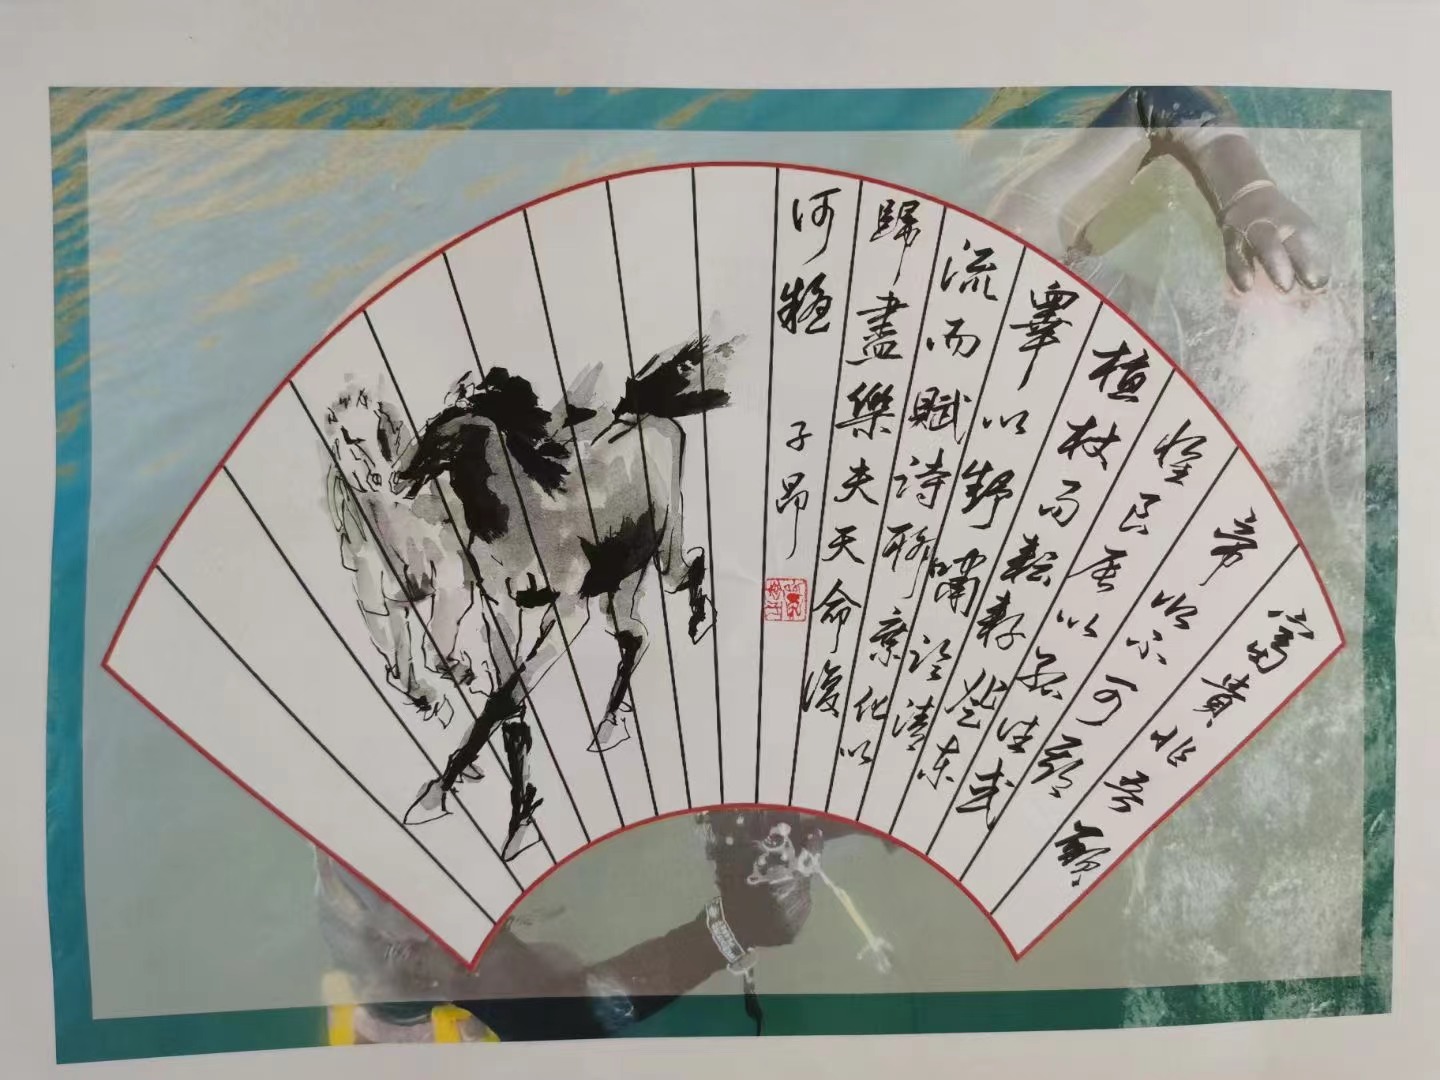 富貴非吾願
帝鄉不可期
懷良辰以孤往或
植杖而耘耔登東
皋以舒嘯臨清
流而賦詩聊乘化以
歸盡樂夫天命復
何疑
子昂